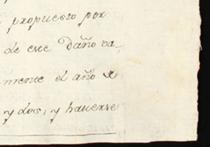 propuesto por
de este daño va
mente el año d
y dos; y haverse